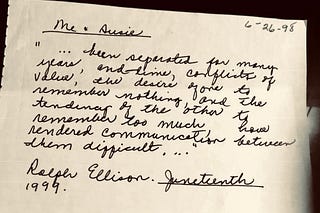 6-26-98
Me & Susie
" ... been separated for many
years, and time, conflicts of
value, the desire of one to
remember nothing and the
tendency of the other to
remember too much, have
rendered communication between
them difficult, ..."
Ralph Ellison. Juneteenth
1999.